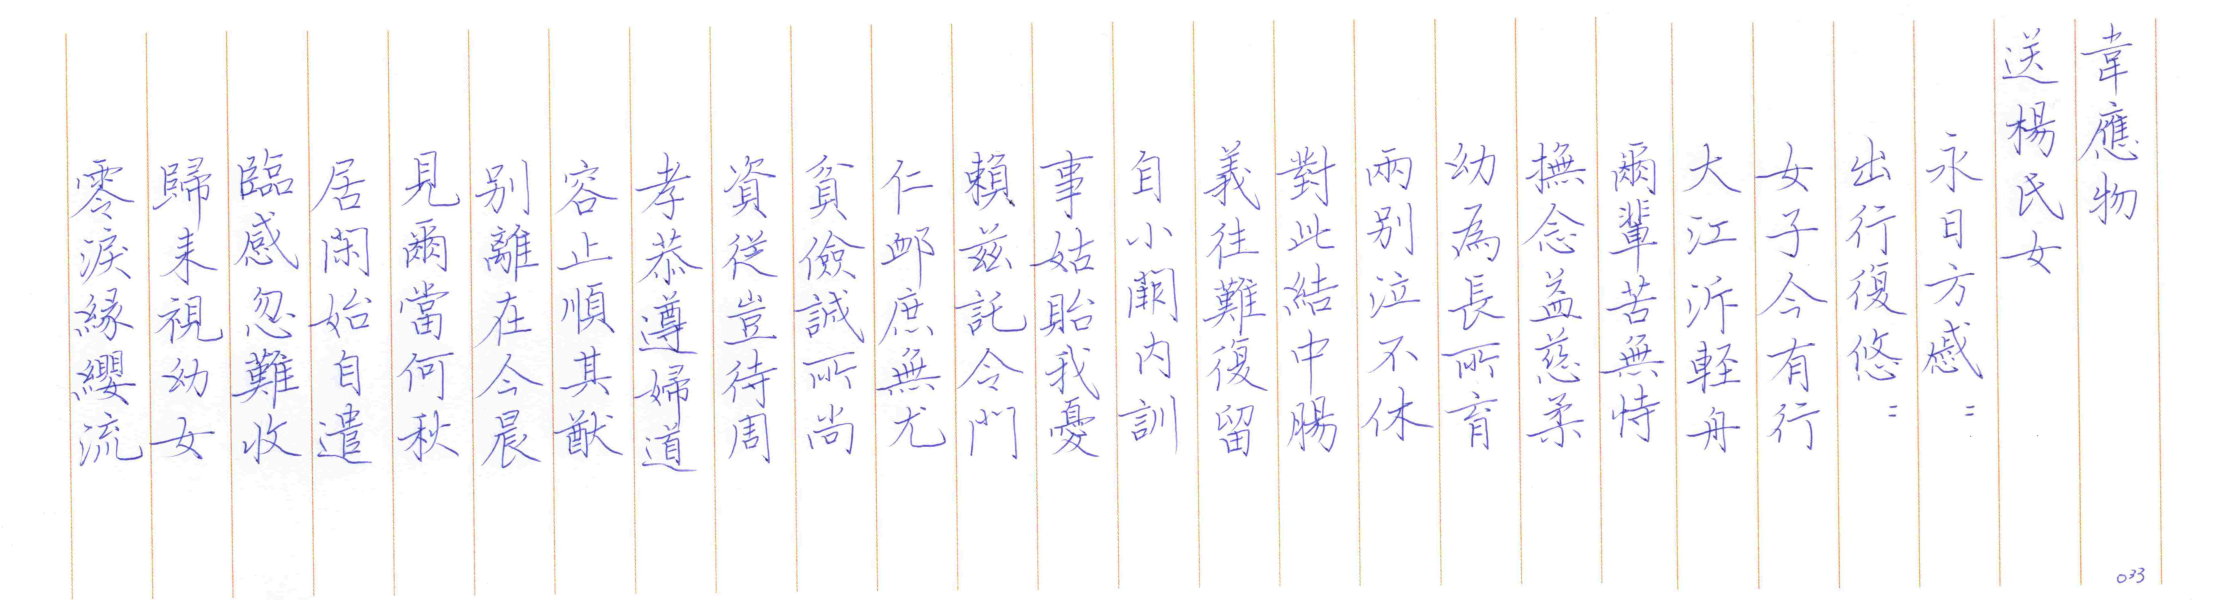 韋應物
送楊氏女
永日方慼〻
出行復悠〻
女子今有行
大江泝軽舟
爾輩苦無恃
撫念益慈柔
幼為長所育
兩別泣不休
對此結中腸
義往難復留
自小闕内訓
事姑貽我憂
賴茲託令門
仁卹庶無尤
貧儉誠所尚
資從豈待周
孝恭遵婦道
容止順其猷
別離在今晨
見爾當何秋
居閑始自遣
臨感忽難收
歸来視幼女
零淚緣纓流
033